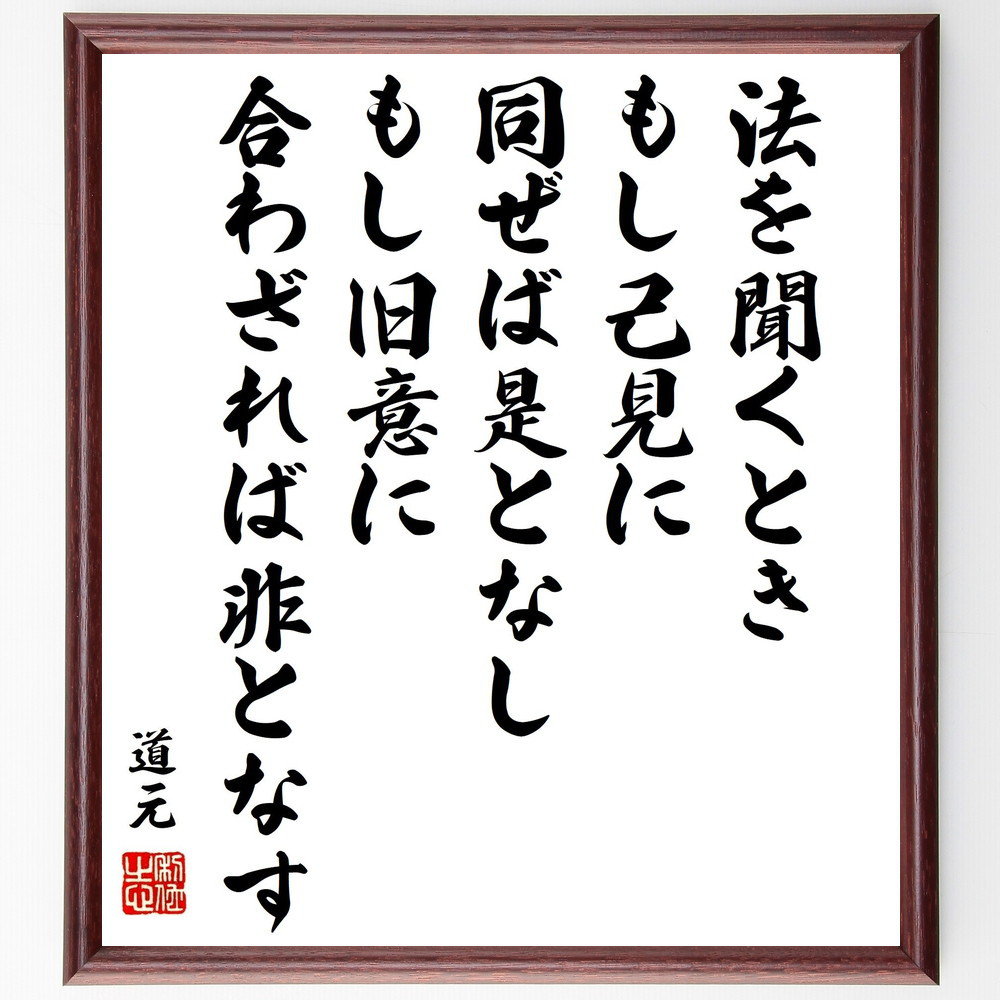 法を聞くとき
もし己見に
同ぜば是となし
もし旧意に
合わざれば非となす
道元